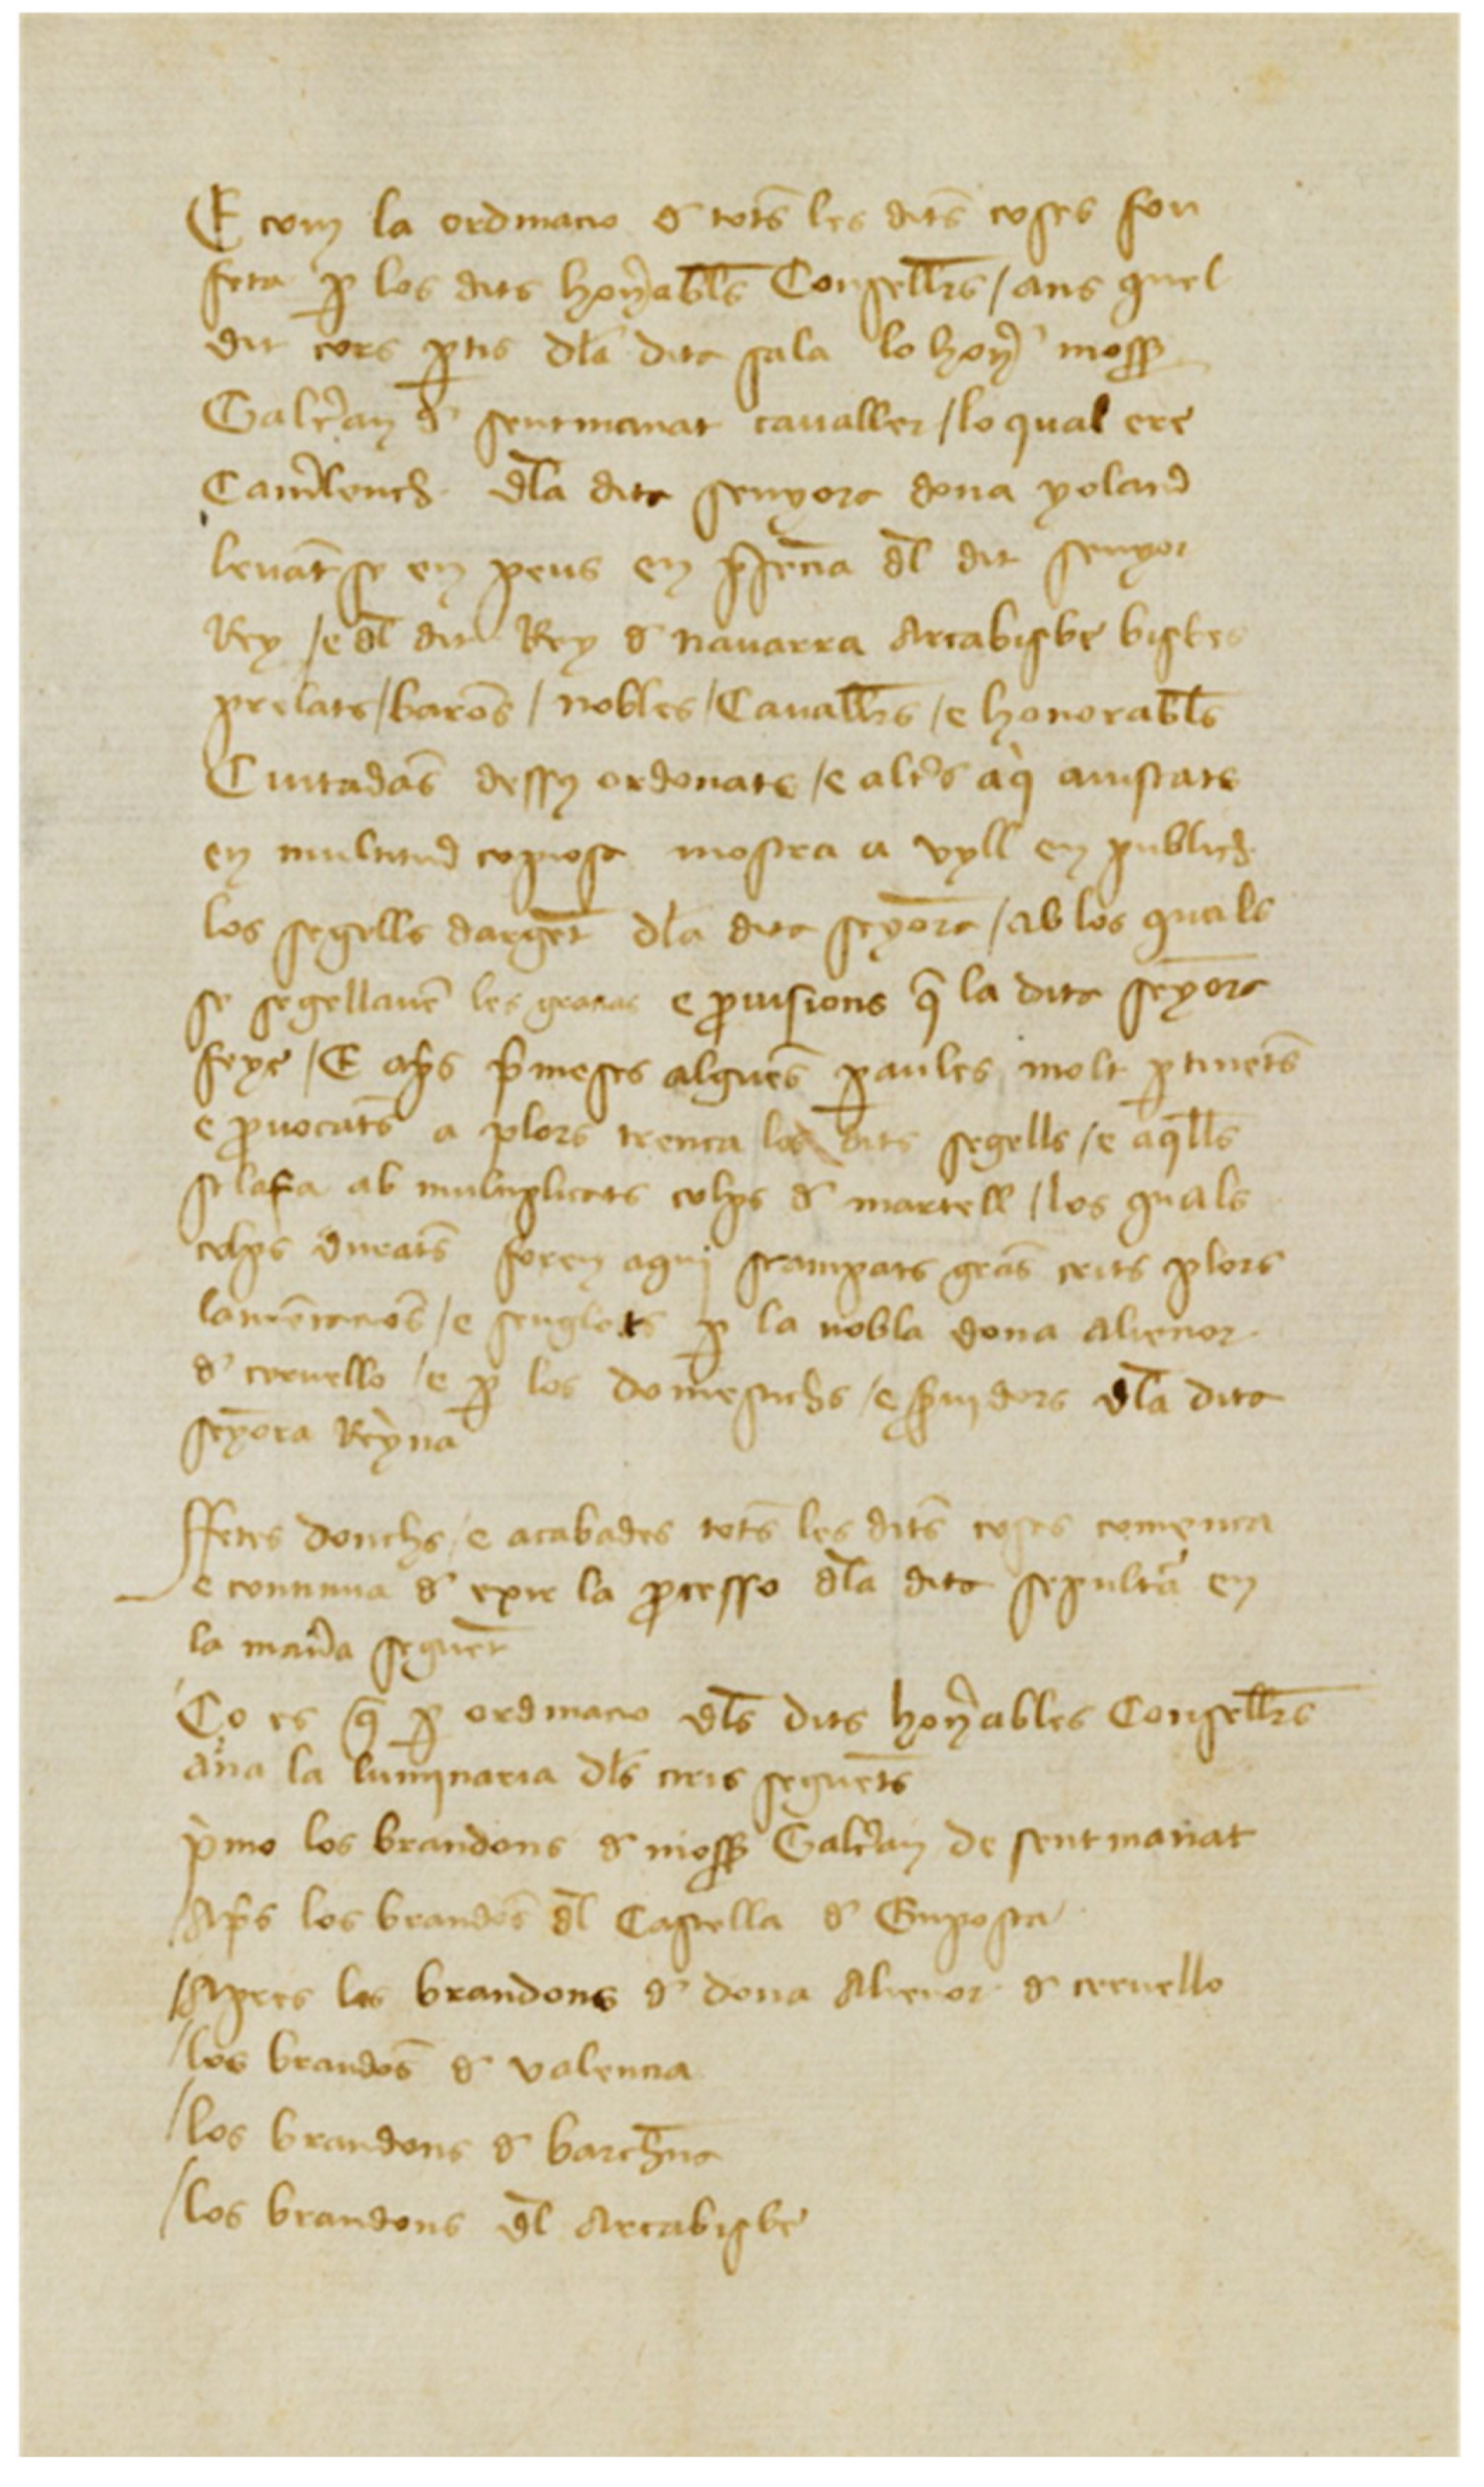 E com la ordinacio d' tots̄ les dits̄ coses fou
feta ꝑ los dits hon̄abl̄s Consell̄rs / ans quel
dit cors ꝑtis dl̄a dita sala lo hon̄ moss̄
Galc̄an d' sentmanat cavaller / lo qual ere
Cam̄lench dl̄a dita senyora dona yoland
levāt se en peus en p̄sēcia dl̄ dit senyor
Rey / e dl̄ dit Rey d' navarra Arcabisbe bisbes
prelats / barōs / nobles / Cavall̄rs / e honorabl̄s
Ciutadās dessỹ ordonats / e alt̄s aq̀ aiustats
en multitud copiosa mostra a vyll en publich
los segells dargēt dl̄a dita seȳora / ab los quals
se segellavē les gracias e ꝓvisions q̄ la dita seȳora
feye / E ap̄s p̄meses alguēs ꝑaules molt ꝑtinēts
e ꝓvocāts a plors trenca los dits segells / e aq̄lls
sclafa ab multiplicats colps d' martell / los quals
colps durāts foren aqui scampats grās crits plors
lamētaciōs / e senglots ꝑ la nobla dona Alienor
d' cervello / e ꝑ los domestichs / e s̄vidors dl̄a dita
seȳora Reyna
ffetes donchs / e acabades tots̄ les dits̄ coses comença
e continua d' exir la ꝓcesso dl̄a dita sepultā en
la man̄a seguēt
Ço es q̄ ꝑ ordinacio dl̄s dits hon̄ables Consell̄rs
ana la luminaria dl̄s ciris seguēts
p̀mo los brandons d' moss̄ Galc̄an de sentmanat
/ Ap̄s los brandōs dl̄ Castella d' Emposta
/ Apres los brandons d' dona Alienor d' cervello
/ los brandōs d' valencia
/ los brandons d' barch̄na
/ los brandons dl̄ Arcabisbe